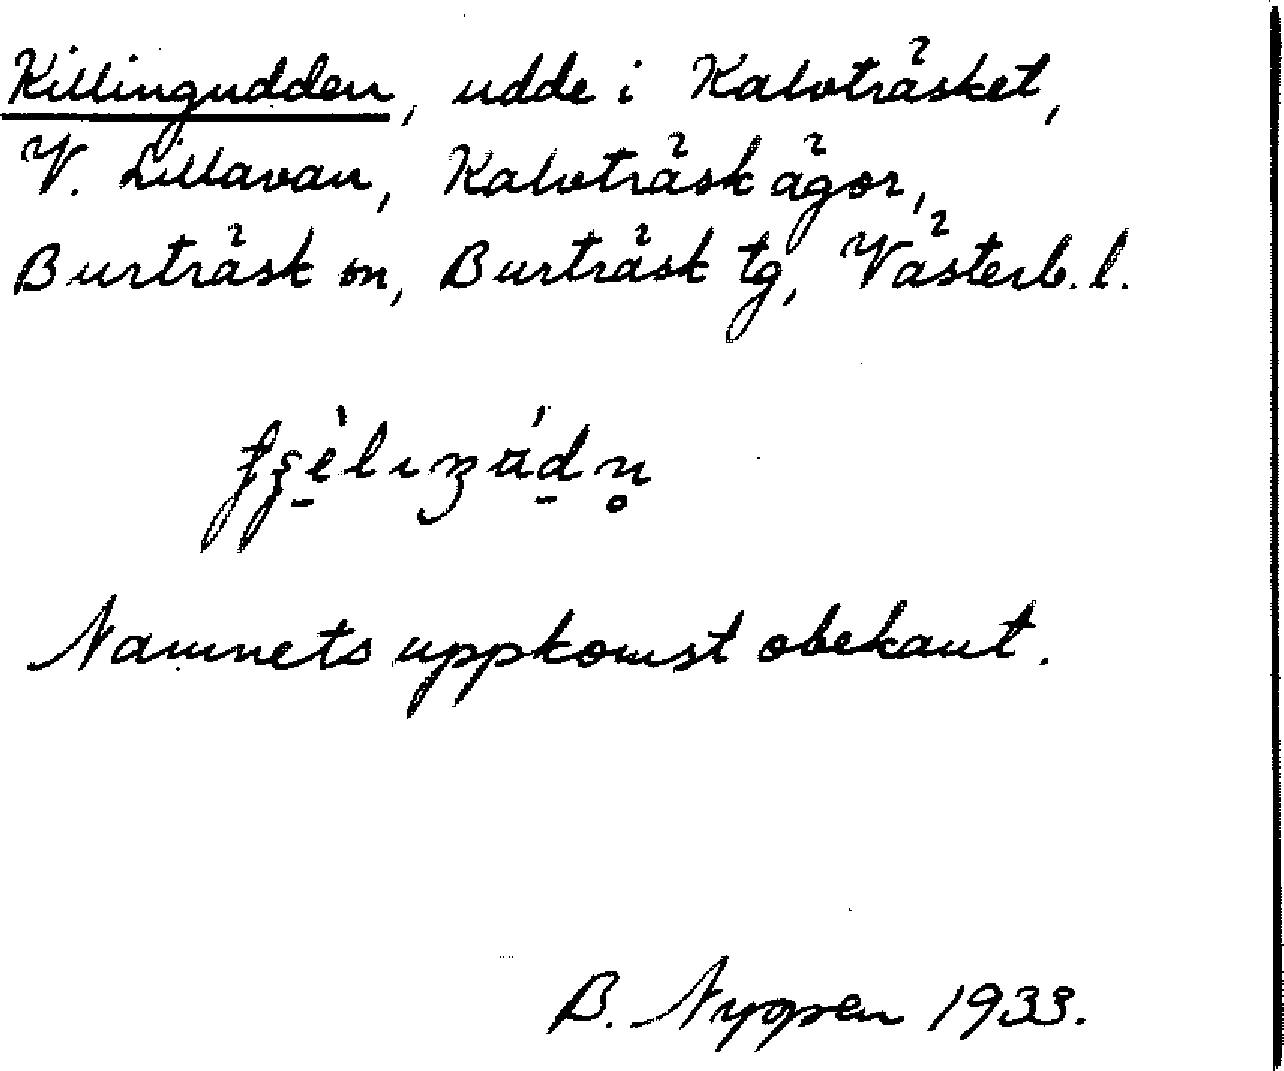 Killingudden, udde i Kalvträsket,
V. Lillavan, Kalvträsk ägor,
Burträsk sn, Burträsk tg, Västerb. l.
Namnets uppkomst obekant.
B. 1933.